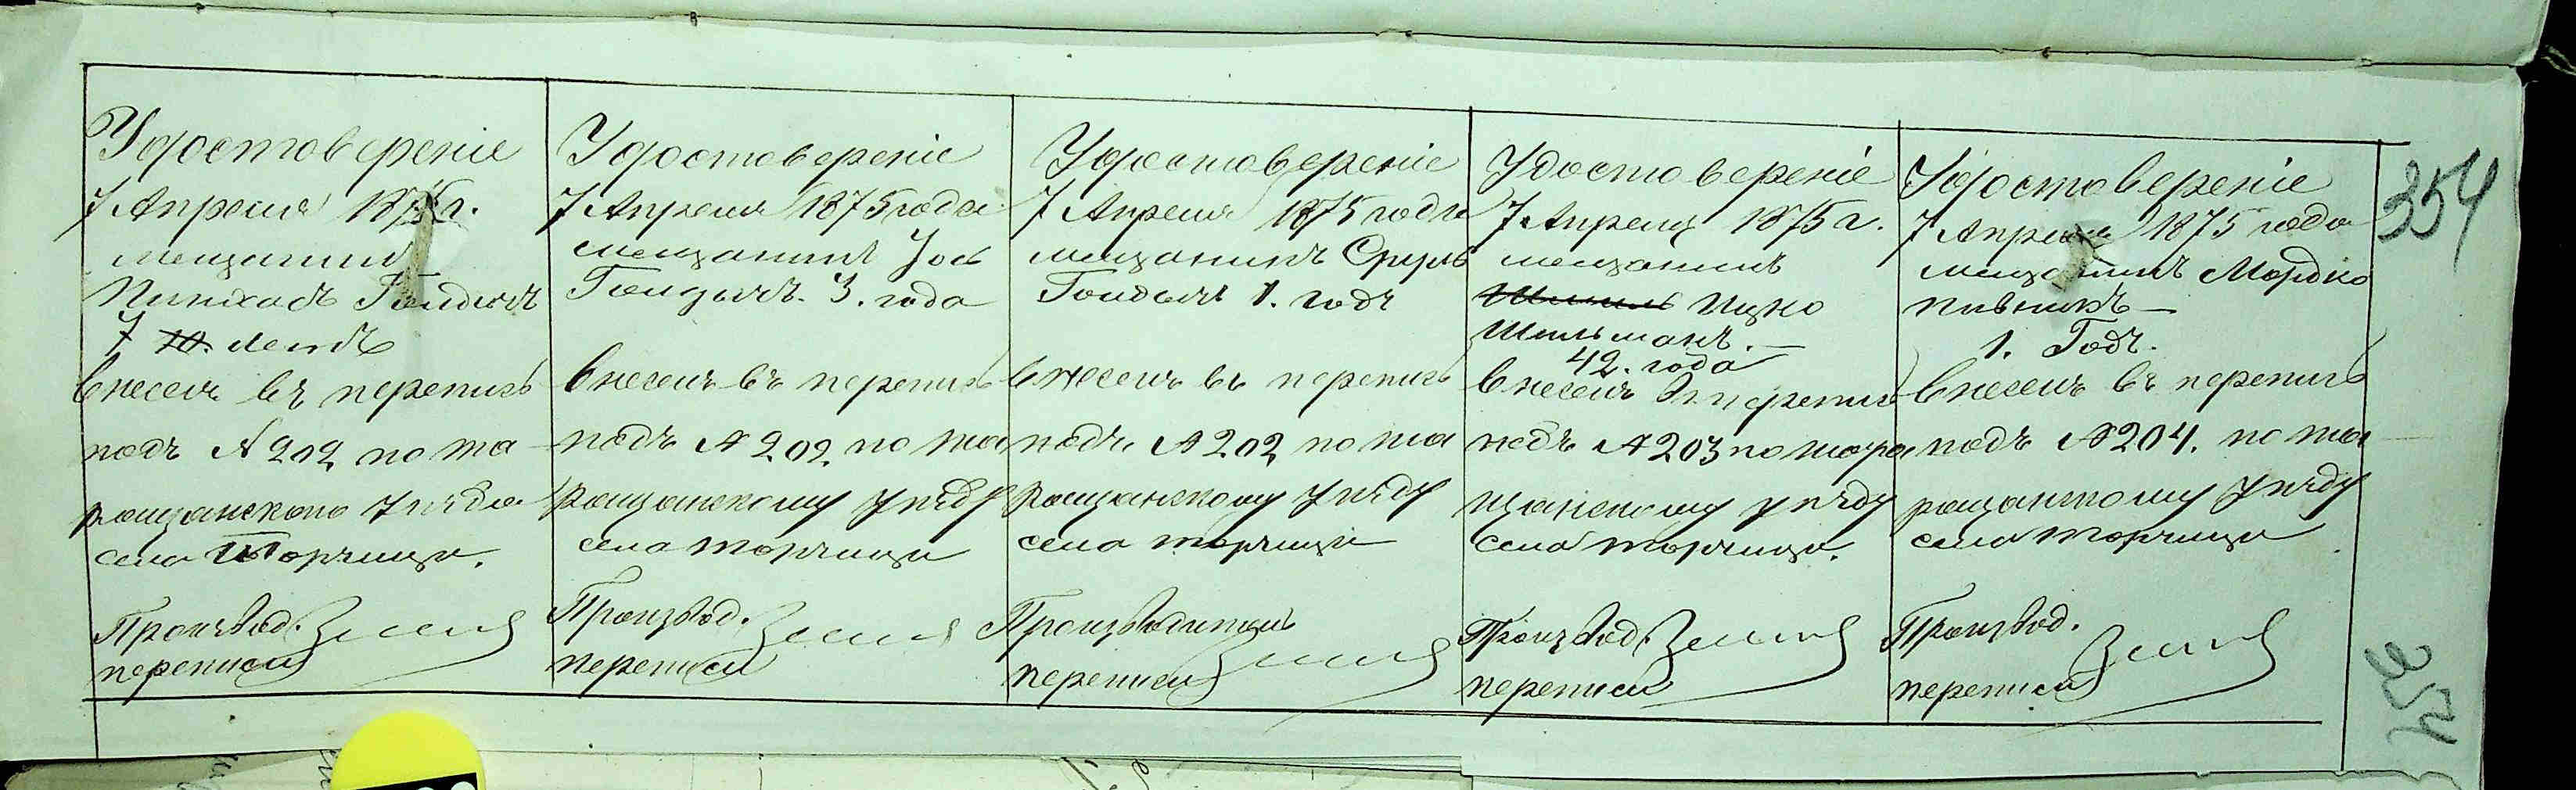 Удостовереніе
7 Апреля 1875 г.
мещанинъ
Пинхасъ Гандычъ
7 10. летъ
внесенъ въ перепись
подъ № 202 по та
ращанскаго уезда
села Торчици.
Производ.
переписи
Удостовереніе
7 Апреля 1875 года
мещанинъ Іось
Гандычъ. 3. года
внесенъ въ перепись
подъ № 202 по та
ращанскому уезду
села торчици
Производ.
переписи
Удостовереніе
7 Апреля 1875 года
мещанинъ Сруль
Гандычъ 1. годъ
внесенъ въ перепись
подъ № 202 по та
ращанскому уезду
села торчици
Производитель
переписи
Удостовереніе
7 Апреля 1875 г.
мещанинъ
Ицко
Шильманъ.
42. года
внесенъ въ перепись
подъ № 203 по тара
щанскому уезду
села торчици.
Производ.
переписи
Удостовереніе
7 Апреля 1875 года
мещанинъ Мордко
Пивникъ
1. Годъ.
внесенъ въ перепись
подъ № 204. по та
ращанскому уезду
села торчици
Производ.
переписи
354